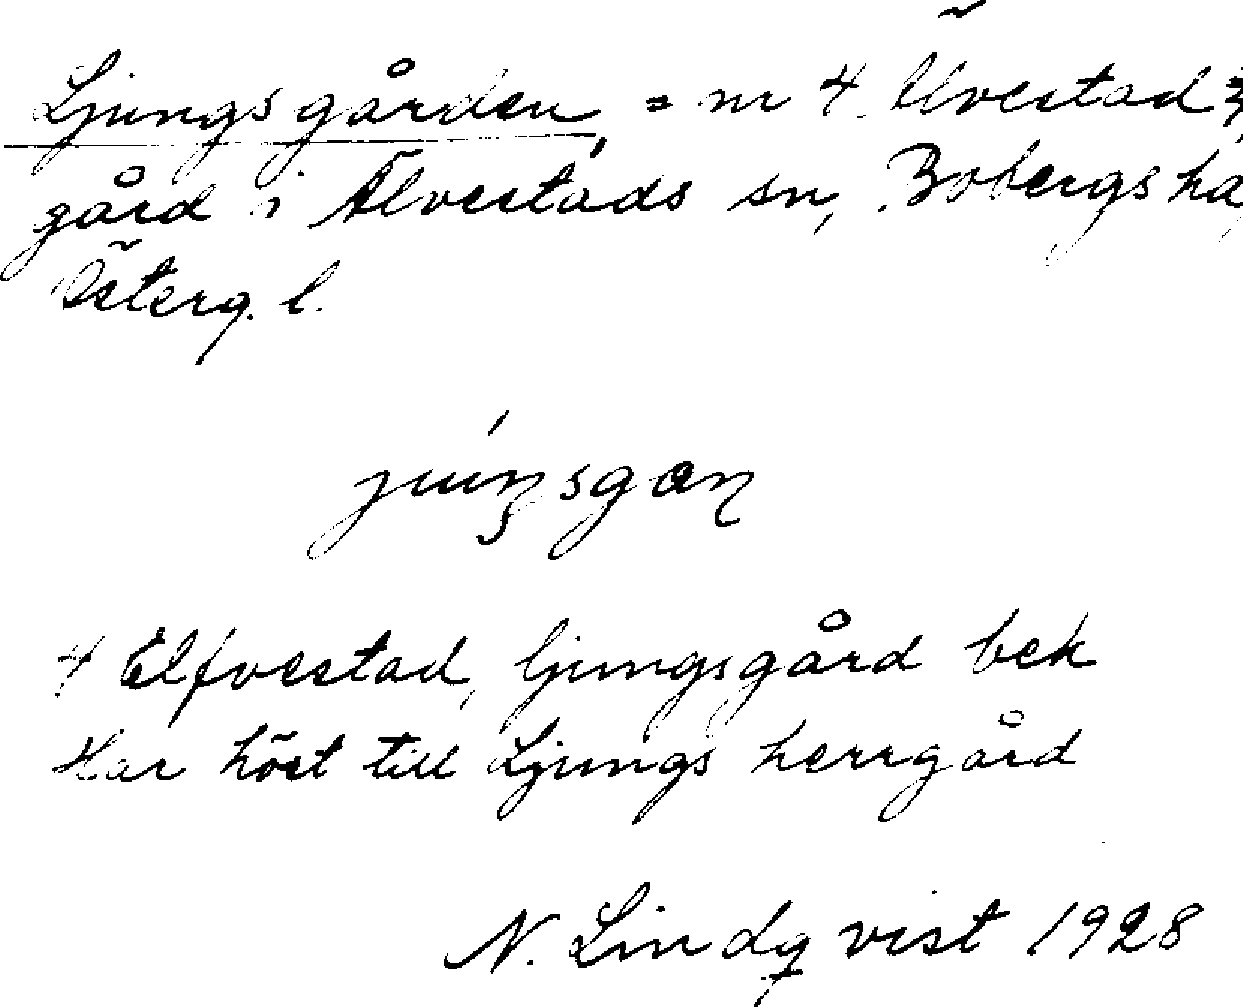 Ljungsgården, = nr 4 Älvestad
gård i Älvestads sn, Bobergs hd,
Österg. l.
4 Elfvestad, ljungsgård bek
Har hört till Ljungs herrgård
N. Lindqvist 1928